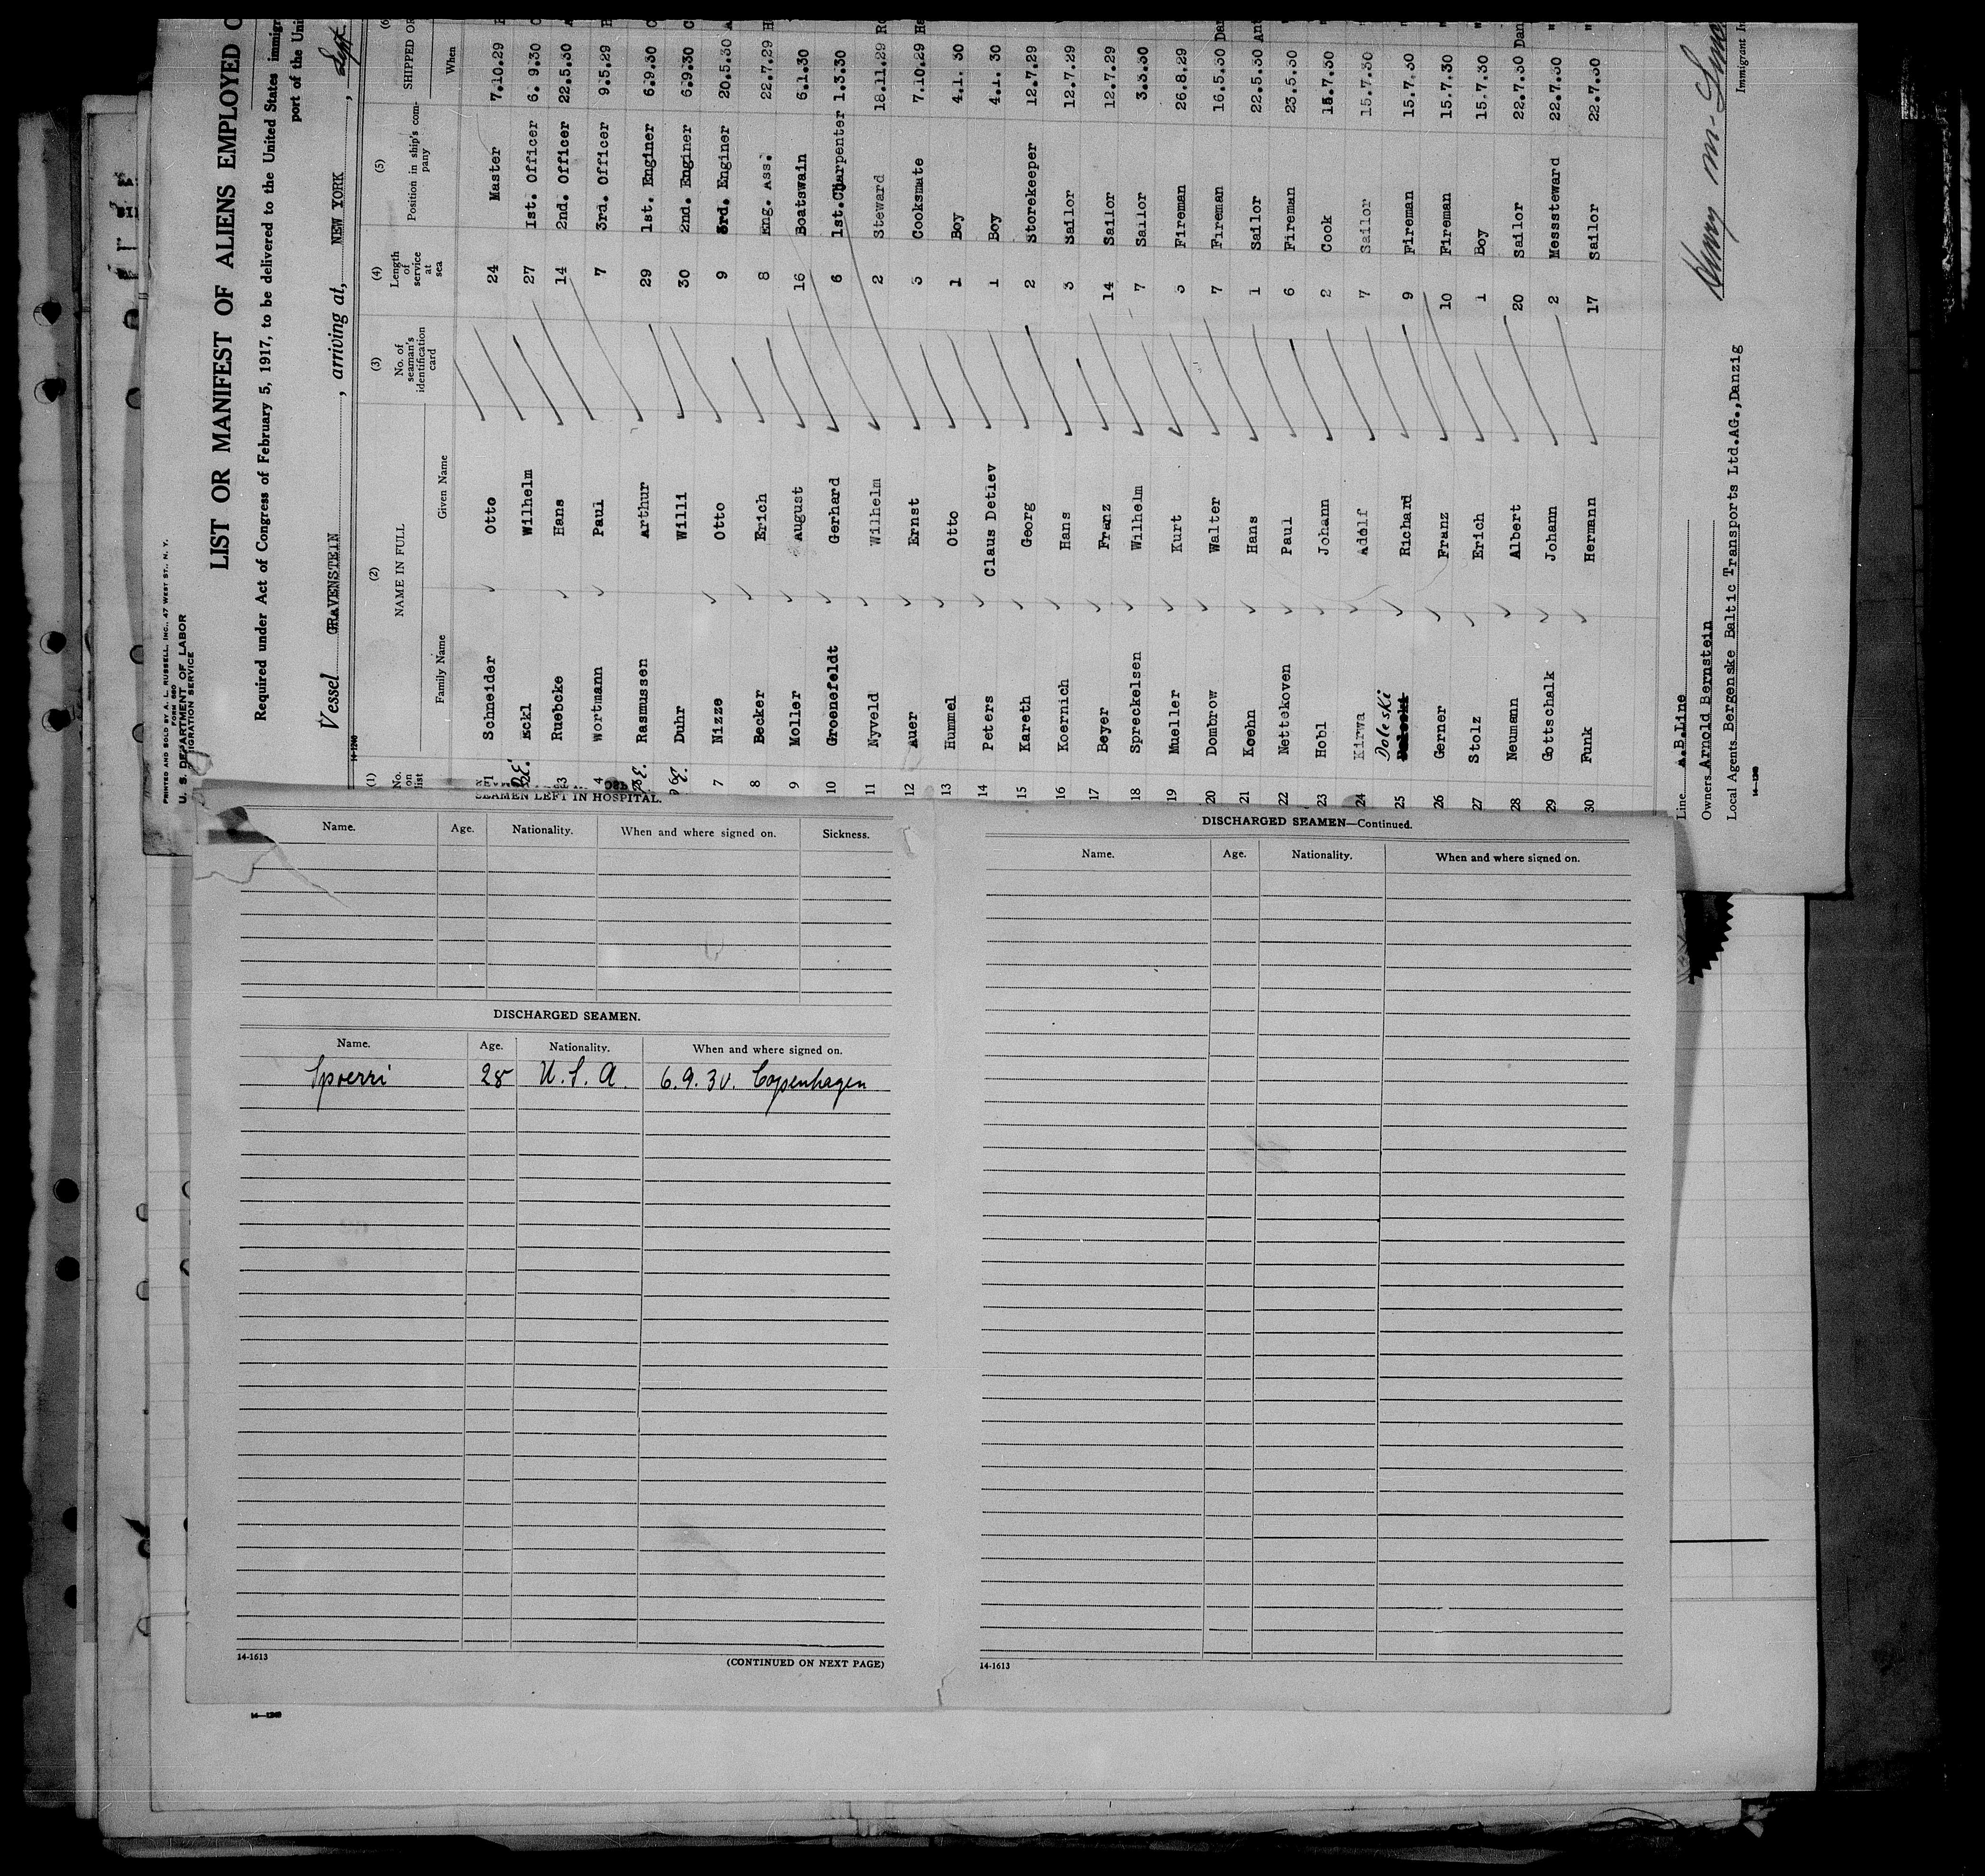 PRINTED AND SOLD BY A. L. RUSSELL, INC., 47 WEST ST., N. Y.
FORM 680
U. S. DEPARTMENT OF LABOR
IMMIGRATION SERVICE
LIST OR MANIFEST OF ALIENS EMPLOYED
Required under Act of Congress of February 5, 1917, to be delivered to the United States
port of the
Vessel GRAVENSTEIN, arriving at, NEW YORK, Sept.
14-1240
(1) (2) (3) (4) (5)
No. on list NAME IN FULL No. of seaman's identification card Length of service at sea Position in ship's company SHIPPED OR
Family Name Given Name When
1 Schneider Otto 24 Master 7.10.29
Eckl Wilhelm 27 1st. Officer 6. 9.30
3 Ruebcke Hans 14 2nd. Officer 22.5.30
4 Wortmann Paul 7 3rd. Officer 9.5.29
Rasmussen Arthur 29 1st. Enginer 6.9.30
6 Duhr Willi 30 2nd. Enginer 6.9.30
7 Nizze Otto 9 3rd. Enginer 20.5.30
8 Becker Erich 8 Eng. Ass. 22.7.29
9 Moller August 16 Boatswain 6.1.30
10 Groenefeldt Gerhard 6 1st.Charpenter 1.3.30
11 Nyveld Wilhelm 2 Steward 18.11.29
12 Auer Ernst 3 Cooksmate 7.10.29
13 Hummel Otto 1 Boy 4.1. 30
14 Peters Claus Detlev 1 Boy 4.1. 30
15 Kareth Georg 2 Storekeeper 12.7.29
16 Koernich Hans 3 Sailor 12.7.29
17 Beyer Franz 14 Sailor 12.7.29
18 Spreckelsen Wilhelm 7 Sailor 3.3.30
19 Mueller Kurt 3 Fireman 26.8.29
20 Dombrow Walter 7 Fireman 16.5.30
21 Koehn Hans 1 Sailor 22.5.30
22 Nettekoven Paul 6 Fireman 23.5.30
23 Hobl Johann 2 Cook 15.7.30 "
24 Kirwa Adolf 7 Sailor 15.7.30 "
25 Doleski Richard 9 Fireman 15.7.30 "
26 Gerner Franz 10 Fireman 15.7.30 "
27 Stolz Erich 1 Boy 15.7.30 "
28 Neumann Albert 20 Sailor 22.7.30
29 Gottschalk Johann 2 Messsteward 22.7.30 "
30 Funk Hermann 17 Sailor 22.7.30 "
Line A.B.Line
Owners Arnold Bernstein
Local Agents Bergenske Baltic Transports Ltd.AG.,Danzig
14-1240
Immigrant
SEAMEN LEFT IN HOSPITAL.
Name. Age. Nationality. When and where signed on. Sickness.
DISCHARGED SEAMEN.
Name. Age. Nationality. When and where signed on.
Spoerri 28 U.S.A. 6.9.30. Copenhagen
14-1613
(CONTINUED ON NEXT PAGE)
DISCHARGED SEAMEN—Continued.
Name. Age. Nationality. When and where signed on.
14-1613
14-1240